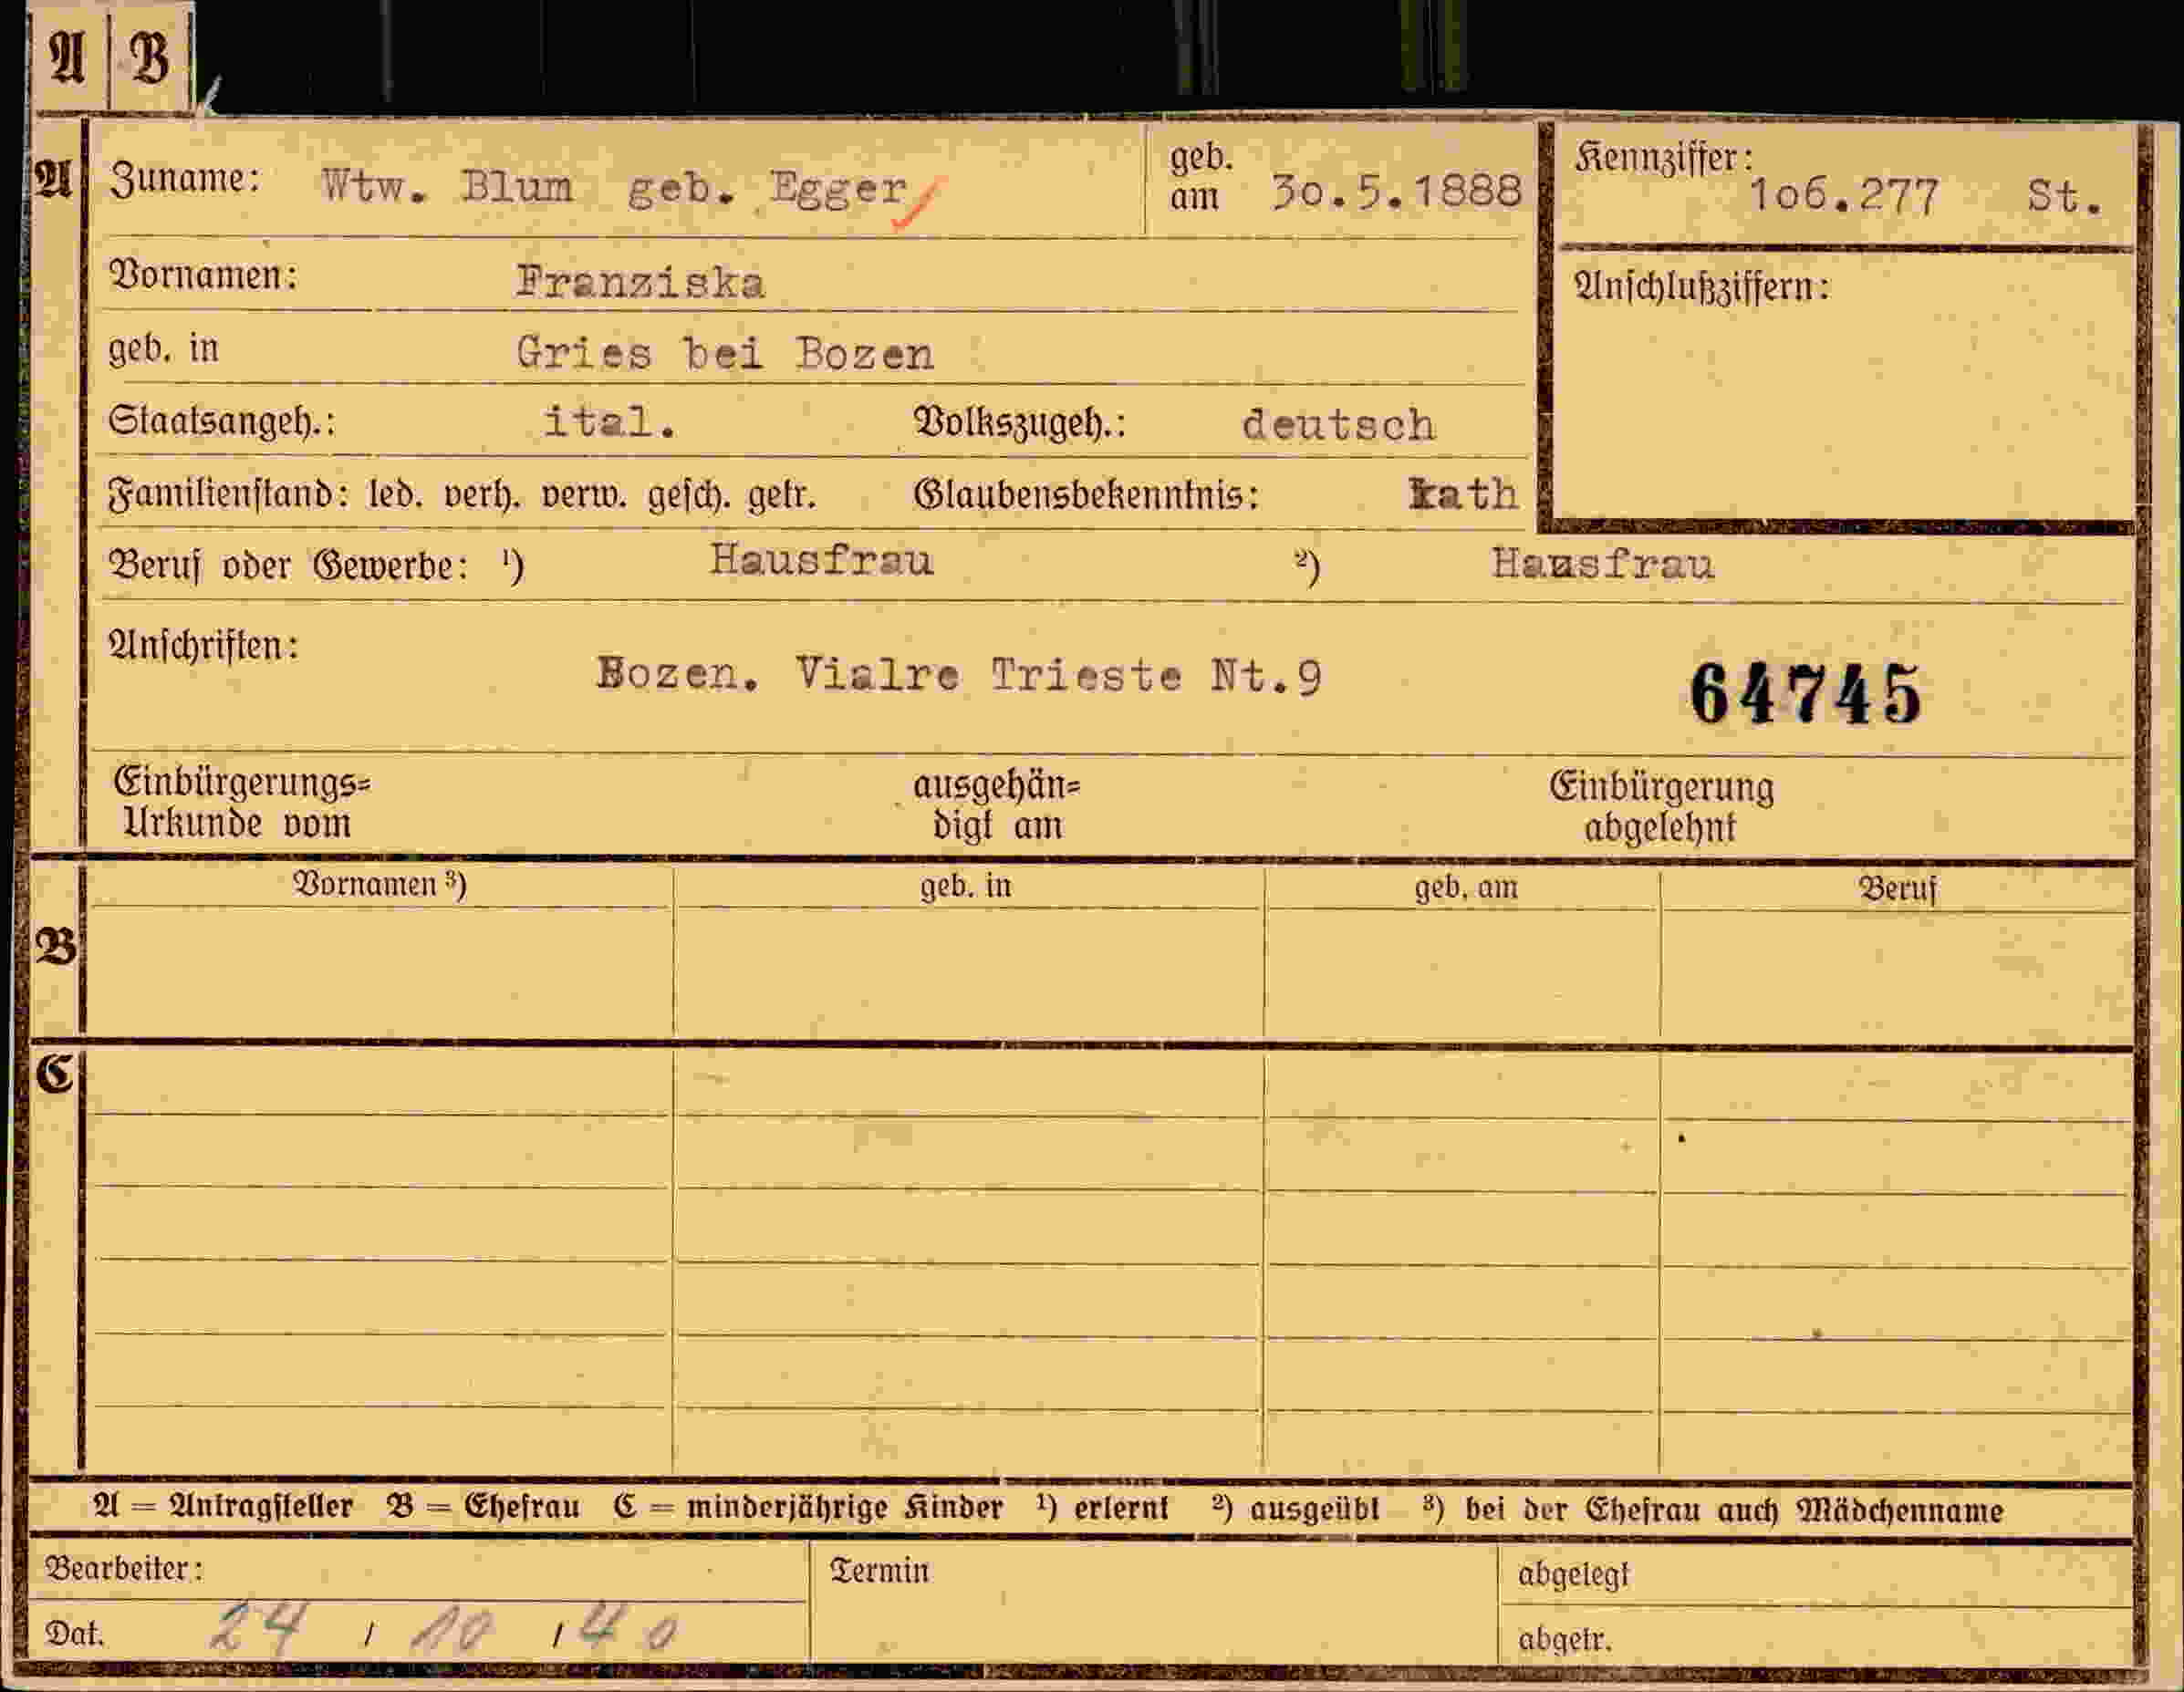 A B
A Zuname: Wtw. Blum geb. Egger geb. am 30.5.1888 Kennziffer: 1o6.277 St.
Vornamen: Franziska Anschlußziffern:
geb. in Gries bei Bozen
Staatsangeh.: ital. Volkszugeh.: deutsch
Familienstand: led. verh. verw. gesch. getr. Glaubensbekenntnis: kath
Beruf oder Gewerbe: ¹) Hausfrau ²) Hausfrau
Anschriften: Bozen. Vialre Trieste Nt.9 64745
Einbürgerungs= ausgehän= Einbürgerung
Urkunde vom digt am abgelehnt
Vornamen ³) geb. in geb. am Beruf
B
C
A = Antragsteller B = Ehefrau C = minderjährige Kinder ¹) erlernt ²) ausgeübt ³) bei der Ehefrau auch Mädchenname
Bearbeiter: Termin abgelegt
Dat. 24 / 10 / 40 abgetr.